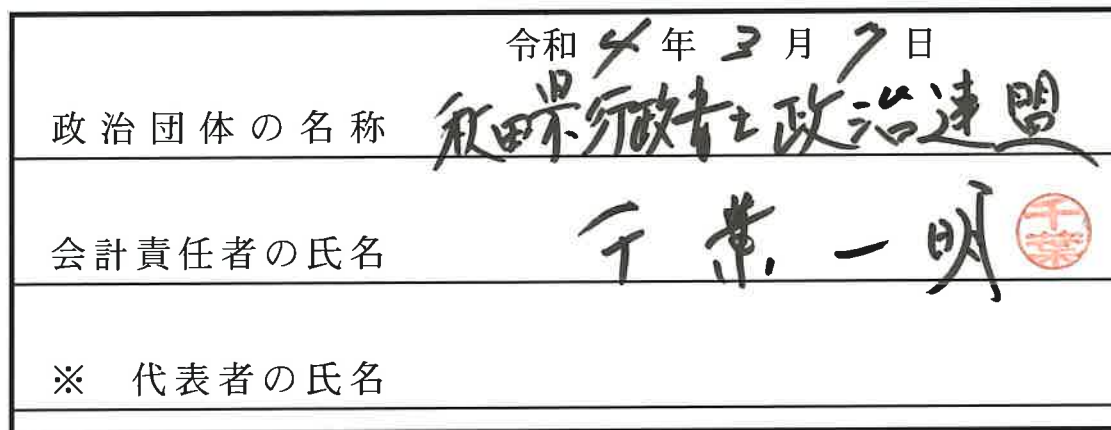 令和 4 年 3 月 7 日
政治団体の名称 秋田県行政書士政治連盟
会計責任者の氏名 千葉一明 千葉
※ 代表者の氏名